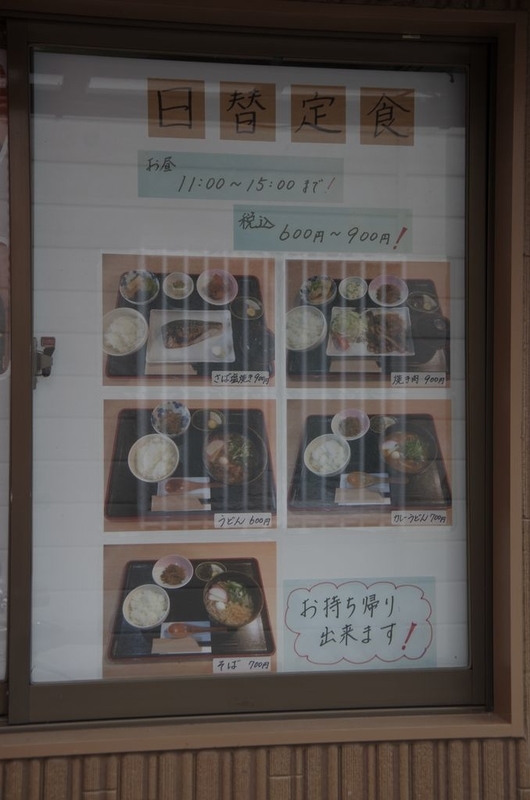 日替定食
お昼
11:00～15:00まで!
税込
600円～900円!
さば塩焼き900円
焼き肉 900円
うどん 600円
カレーうどん700円
そば 700円
お持ち帰り
出来ます!